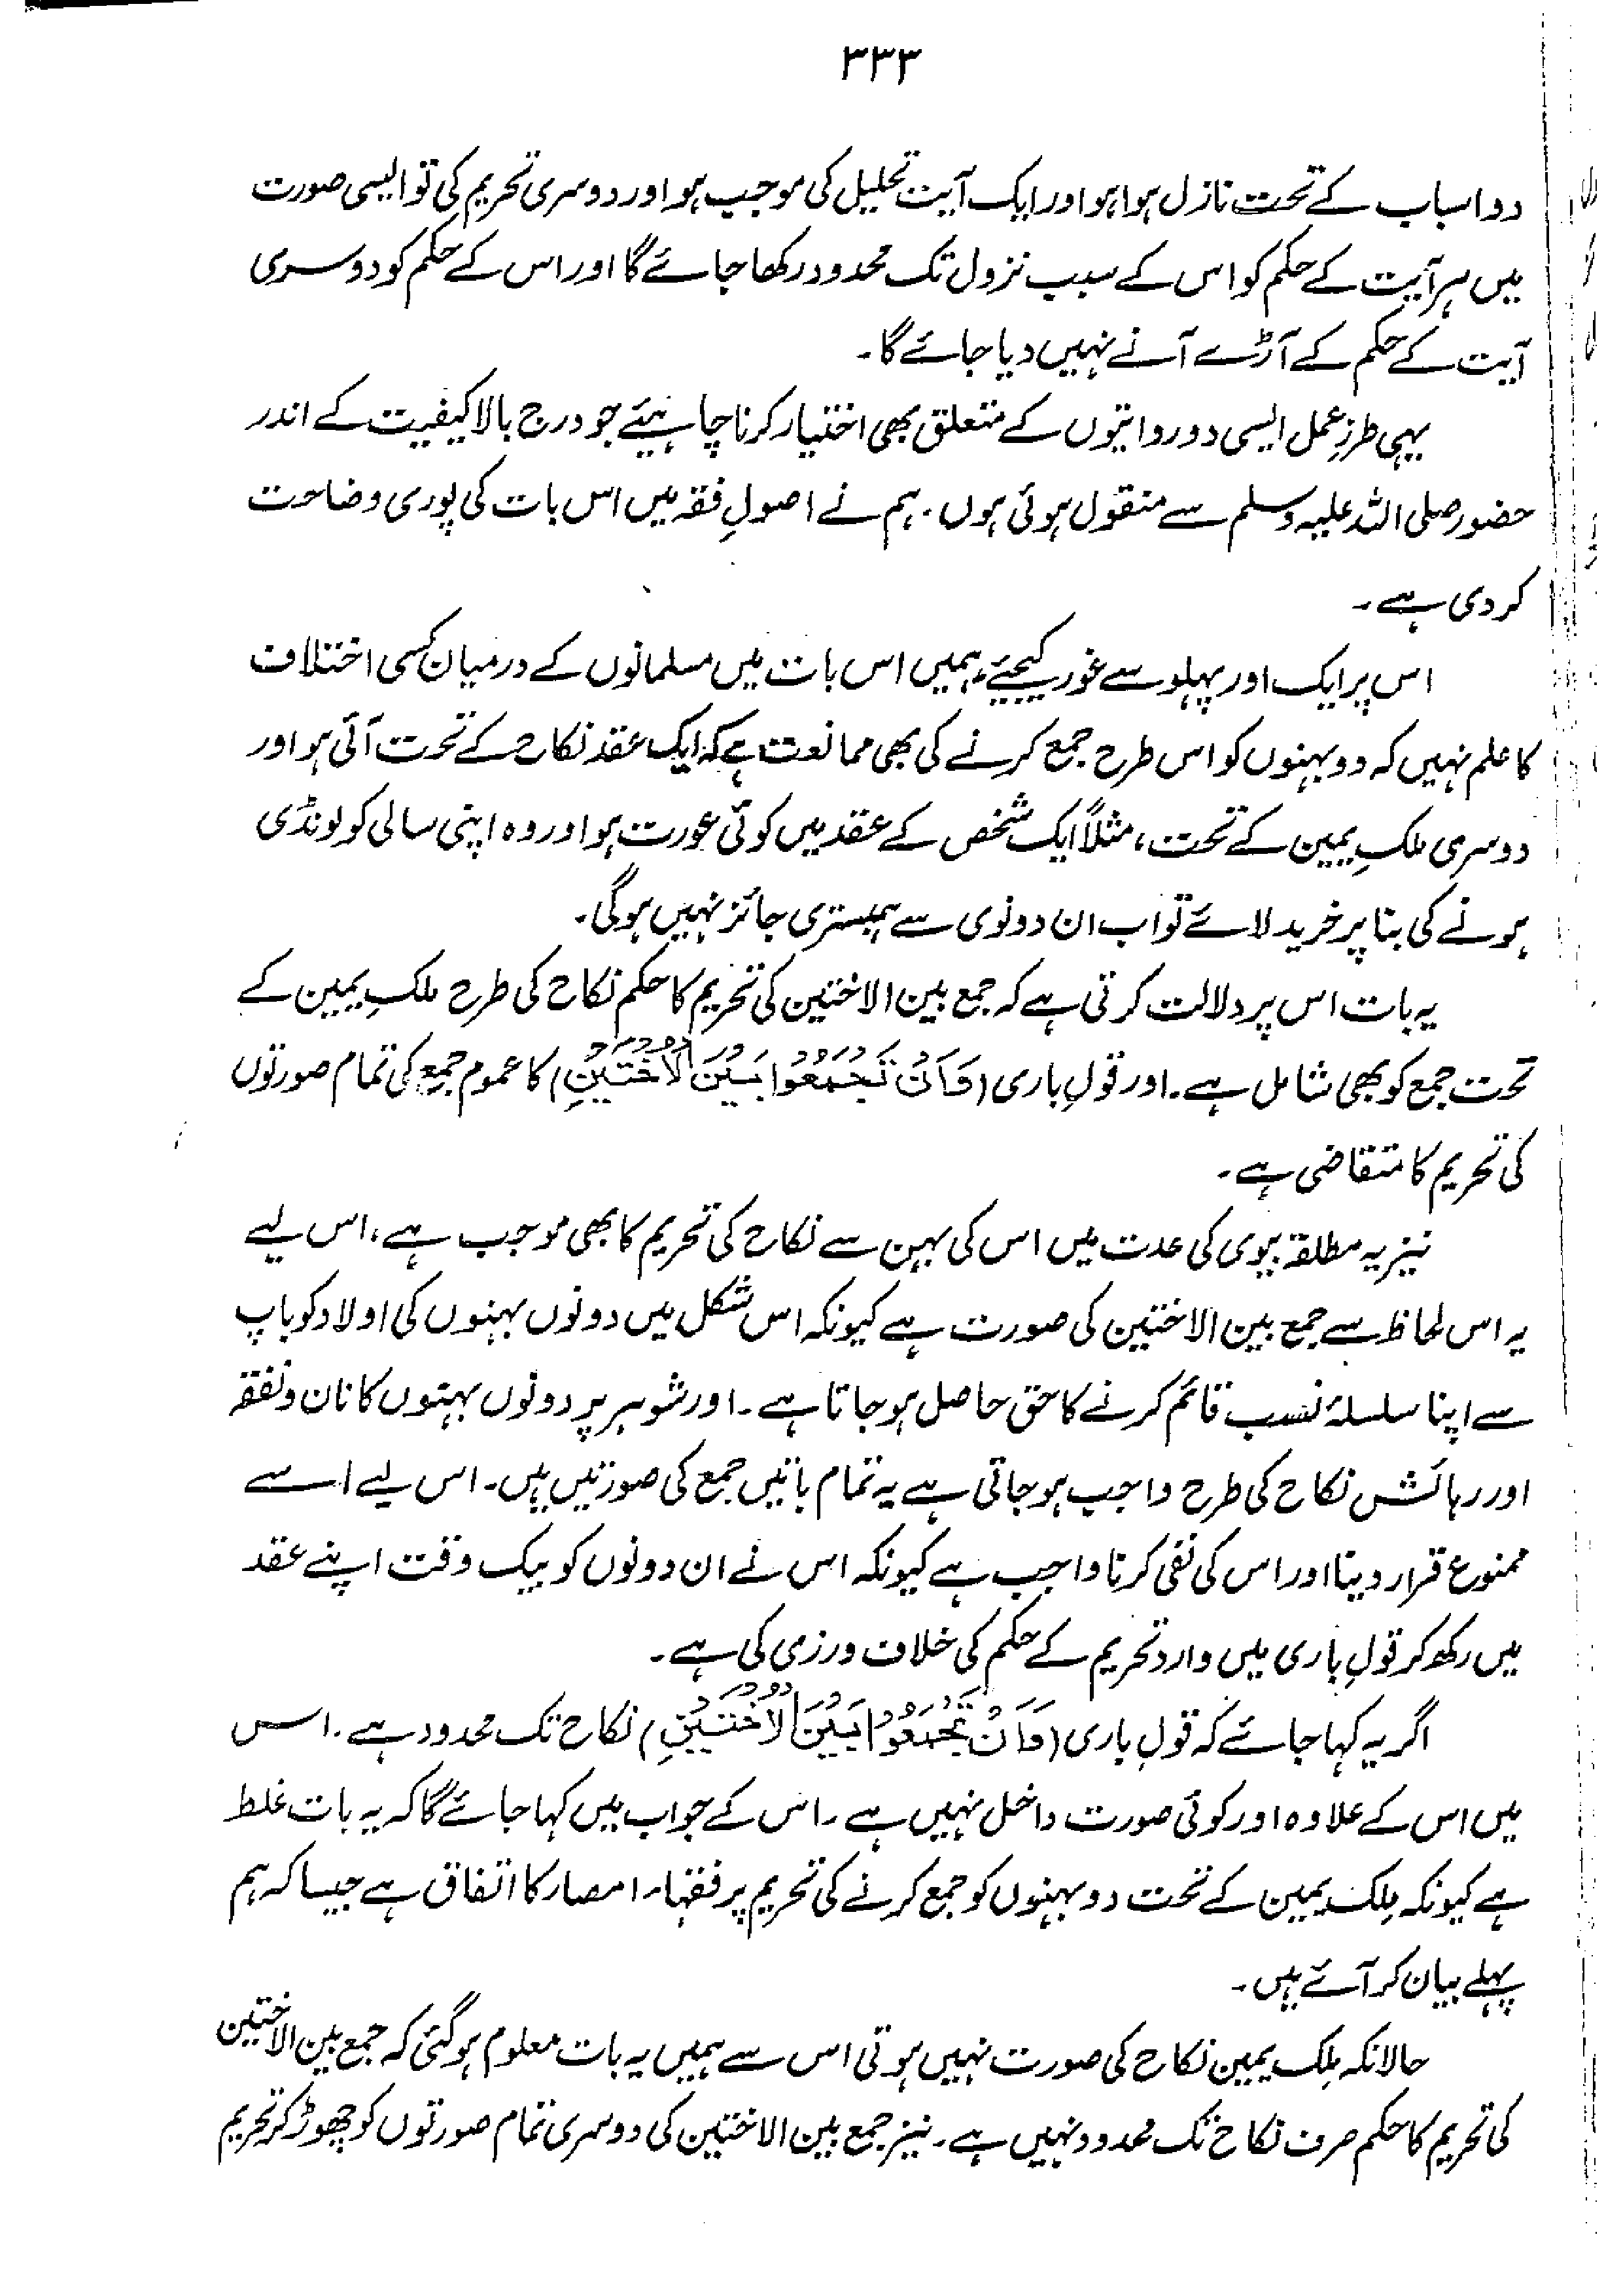 ۳۳۳
دو اسباب کے تحت نازل ہوا ہو اور ایک آیت تحلیل کی موجب ہو اور دوسری تحریم کی تو ایسی صورت
میں ہر آیت کے حکم کو اس کے سبب نزول تک محدود رکھا جائے گا اور اس کے حکم کو دوسری
آیت کے حکم کے آڑے آنے نہیں دیا جائے گا۔
یہی طرزِ عمل ایسی دو روایتوں کے متعلق بھی اختیار کرنا چاہیئے جو درج بالا کیفیت کے اندر
حضور صلی اللہ علیہ وسلم سے منقول ہوئی ہوں۔ ہم نے اصولِ فقہ میں اس بات کی پوری وضاحت
کر دی ہے۔
اس پر ایک اور پہلو سے غور کیجیئے، ہمیں اس بات میں مسلمانوں کے درمیان کسی اختلاف
کا علم نہیں کہ دو بہنوں کو اس طرح جمع کرنے کی بھی ممانعت ہے کہ ایک عقد نکاح کے تحت آئی ہو اور
دوسری ملکِ یمین کے تحت، مثلاً ایک شخص کے عقد میں کوئی عورت ہو اور وہ اپنی سالی کو لونڈی
ہونے کی بنا پر خرید لائے تو اب ان دونوی سے ہمبستری جائز نہیں ہوگی۔
یہ بات اس پر دلالت کرتی ہے کہ جمع بین الاختین کی تحریم کا حکم نکاح کی طرح ملکِ یمین کے
تحت جمع کو بھی شامل ہے۔ اور قولِ باری (وَاَنْ تَجْمَعُوْا بَيْنَ الْاُخْتَيْنِ) کا عموم جمع کی تمام صورتوں
کی تحریم کا متقاضی ہے۔
نیز یہ مطلقہ بیوی کی عدت میں اس کی بہن سے نکاح کی تحریم کا بھی موجب ہے، اس لیے
یہ اس لحاظ سے جمع بین الاختین کی صورت ہے کیونکہ اس شکل میں دونوں بہنوں کی اولاد کو باپ
سے اپنا سلسلۂ نسب قائم کرنے کا حق حاصل ہو جاتا ہے۔ اور شوہر پر دونوں بہنوں کا نان و نفقہ
اور رہائش نکاح کی طرح واجب ہو جاتی ہے یہ تمام باتیں جمع کی صورتیں ہیں۔ اس لیے اسے
ممنوع قرار دینا اور اس کی نفی کرنا واجب ہے کیونکہ اس نے ان دونوں کو بیک وقت اپنے عقد
میں رکھ کر قولِ باری میں وارد تحریم کے حکم کی خلاف ورزی کی ہے۔
اگر یہ کہا جائے کہ قولِ باری (وَاَنْ تَجْمَعُوْا بَيْنَ الْاُخْتَيْنِ) نکاح تک محدود ہے۔ اس
میں اس کے علاوہ اور کوئی صورت داخل نہیں ہے۔ اس کے جواب میں کہا جائے گا کہ یہ بات غلط
ہے کیونکہ ملک یمین کے تحت دو بہنوں کو جمع کرنے کی تحریم پر فقہاء امصار کا اتفاق ہے جیسا کہ ہم
پہلے بیان کر آئے ہیں۔
حالانکہ ملک یمین نکاح کی صورت نہیں ہوتی اس سے ہمیں یہ بات معلوم ہو گئی کہ جمع بین الاختین
کی تحریم کا حکم صرف نکاح تک محدود نہیں ہے۔ نیز جمع بین الاختین کی دوسری تمام صورتوں کو چھوڑ کر تحریم